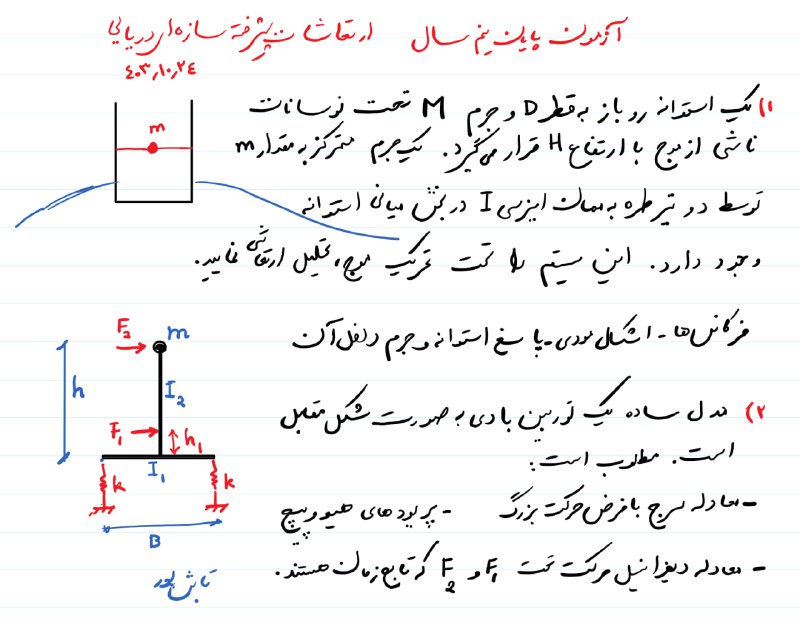 آزمون پایان نیم سال ارتعاشات پیشرفته سازه‌های دریایی
۴۰۳,۱۰,۲۴
۱) یک استوانه رو باز به قطر D و جرم M تحت نوسانات
ناشی از موج با ارتفاع H قرار می‌گیرد. یک جرم متمرکز به مقدار m
توسط دو تیر طره به ممان اینرسی I در بخش میانی استوانه
وجود دارد. این سیستم را تحت تحریک موج، تحلیل ارتعاشی نمایید.
فرکانس‌ها - اشکال مودی - پاسخ استوانه و جرم داخل آن
m
۲) مدل ساده یک توربین بادی به صورت شکل مقابل
است. مطلوب است:
- معادله سرج با فرض حرکت بزرگ - پریودهای هیو و پیچ
- معادله دیفرانسیل حرکت تحت F₁ و F₂ که تابع زمان هستند.
F₂ m
h I₂
F₁ h₁
I₁
k k
B
تابش‌پور